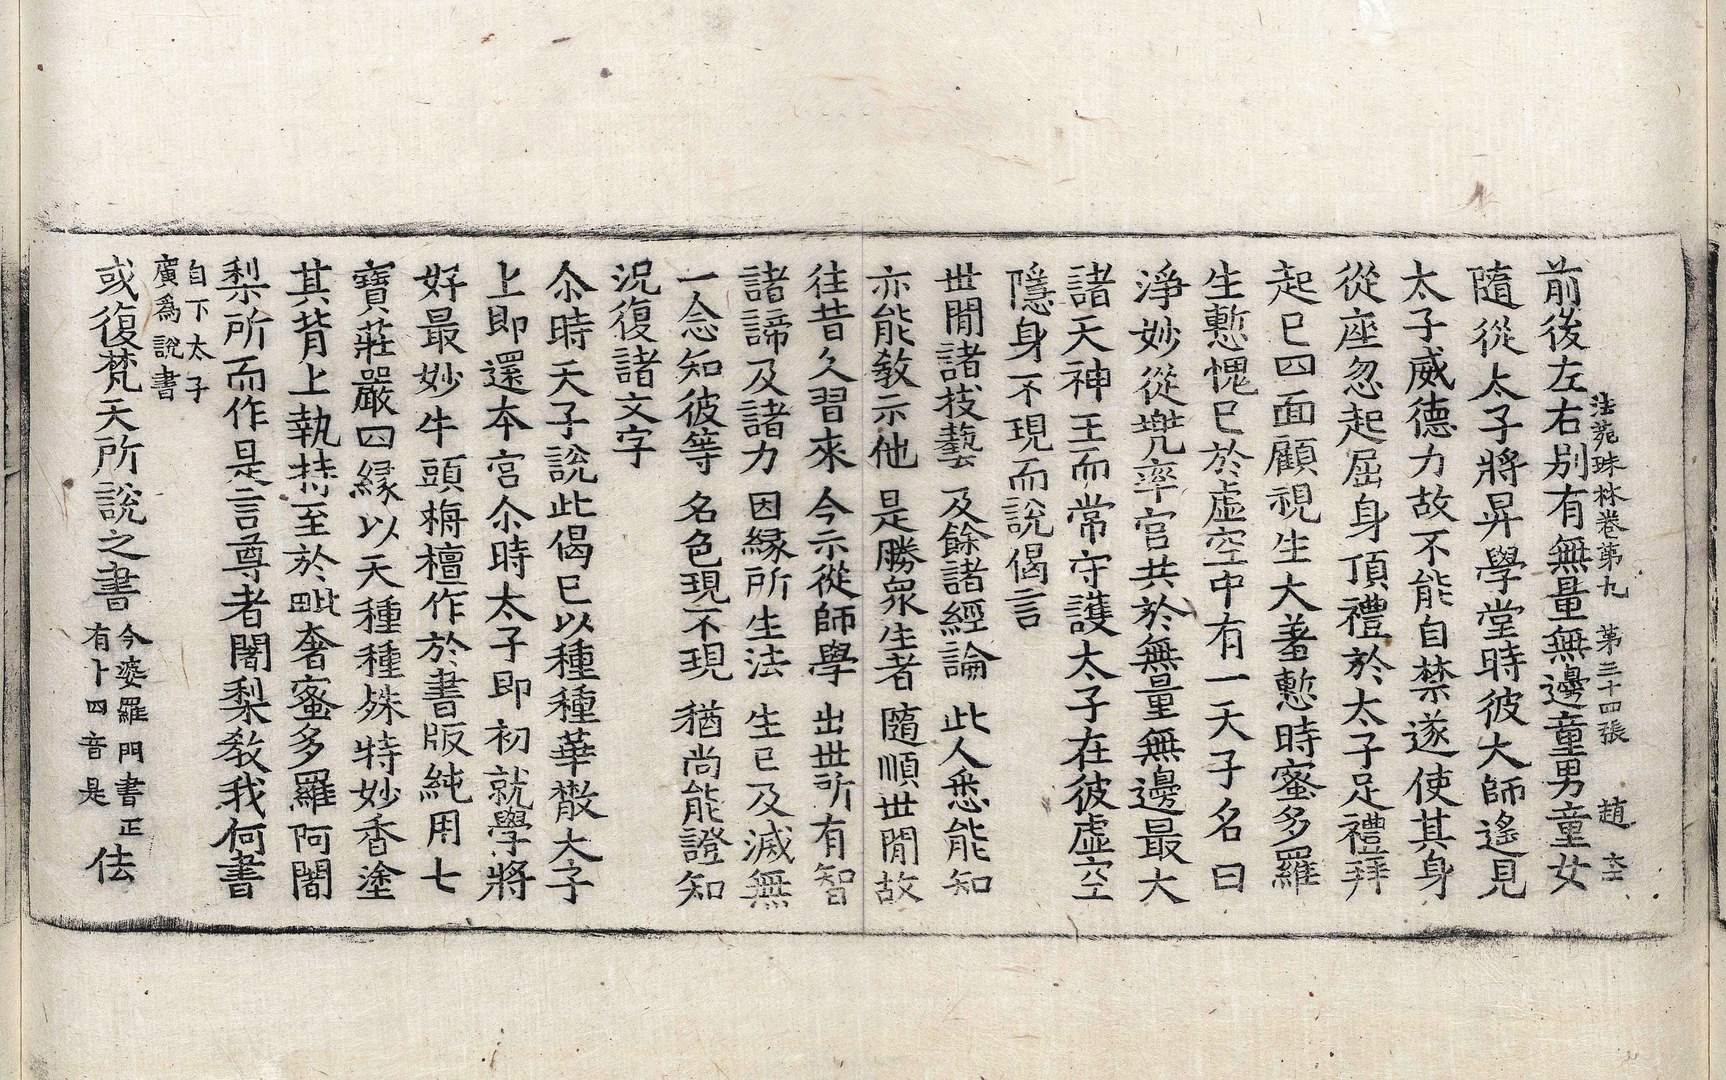 法苑珠林卷第九 第三十四張 趙 士
前後左右別有無量無邊童男童女
隨從太子將昇學堂時彼大師遙見
太子威德力故不能自禁遂使其身
從座忽起屈身頂禮於太子足禮拜
起已四面顧視生大羞慙時蜜多羅
生慙愧已於虛空中有一天子名曰
淨妙從兜率宮共於無量無邊最大
諸天神王而常守護太子在彼虛空
隱身不現而說偈言
世閒諸技藝 及餘諸經論 此人悉能知
亦能敎示他 是勝衆生者 隨順世閒故
往昔久習來 今示從師學 出世所有智
諸諦及諸力 因緣所生法 生已及滅無
一念知彼等 名色現不現 猶尚能證知
況復諸文字
尒時天子說此偈已以種種華散太子
上即還本宮尒時太子即初就學將
好最妙牛頭栴檀作於書版純用七
寶莊嚴四緣以天種種殊特妙香塗
其背上執持至於毗奢蜜多羅阿闍
梨所而作是言尊者闍梨敎我何書
自下太子
廣爲說書
或復梵天所說之書
今婆羅門書正
有卜四音是
佉